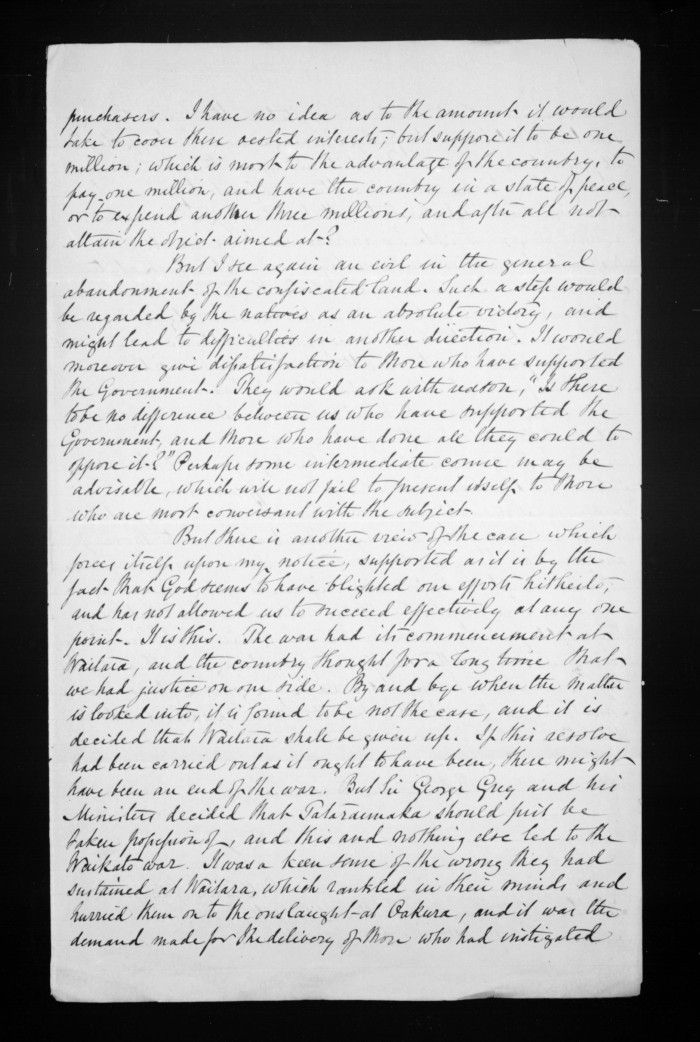 purchasers. I have no idea as to the amount it would
take to cover these vested interests; but suppose it to be one
million; which is most to the advantage of the country, to
pay one million, and have the country in a state of peace,
or to expend another three millions, and after all not
attain the object aimed at?
But I see again an evil in the general
abandonment of the confiscated land. Such a step would
be regarded by the natives as an absolute victory, and
might lead to difficulties in another direction. It would
moreover give dissatisfaction to those who have supported
the Government. They would ask with reason, "Is there
to be no difference between us who have supported the
Government, and those who have done all they could to
oppose it?" Perhaps some intermediate course may be
advisable, which will not fail to present itself to those
who are most conversant with the subject.
But there is another view of the case which
forces itself upon my notice, supported as it is by the
fact that God seems to have blighted our efforts hitherto,
and has not allowed us to succeed effectively at any one
point. It is this. The war had its commencement at
Waitara, and the country thought for a long time that
we had justice on our side. By and bye when the matter
is looked into, it is found to be not the case, and it is
decided that Waitara shall be given up. If this resolve
had been carried out as it ought to have been, there might
have been an end of the war. But Sir George Grey and his
Ministers decided that Tataraemaka should just be
taken possession of, and this and nothing else led to the
Waikato war. It was a keen sense of the wrong they had
sustained at Waitara, which rankled in their minds and
hurried them on to the onslaught at Oakura, and it was the
demand made for the delivery of those who had instigated